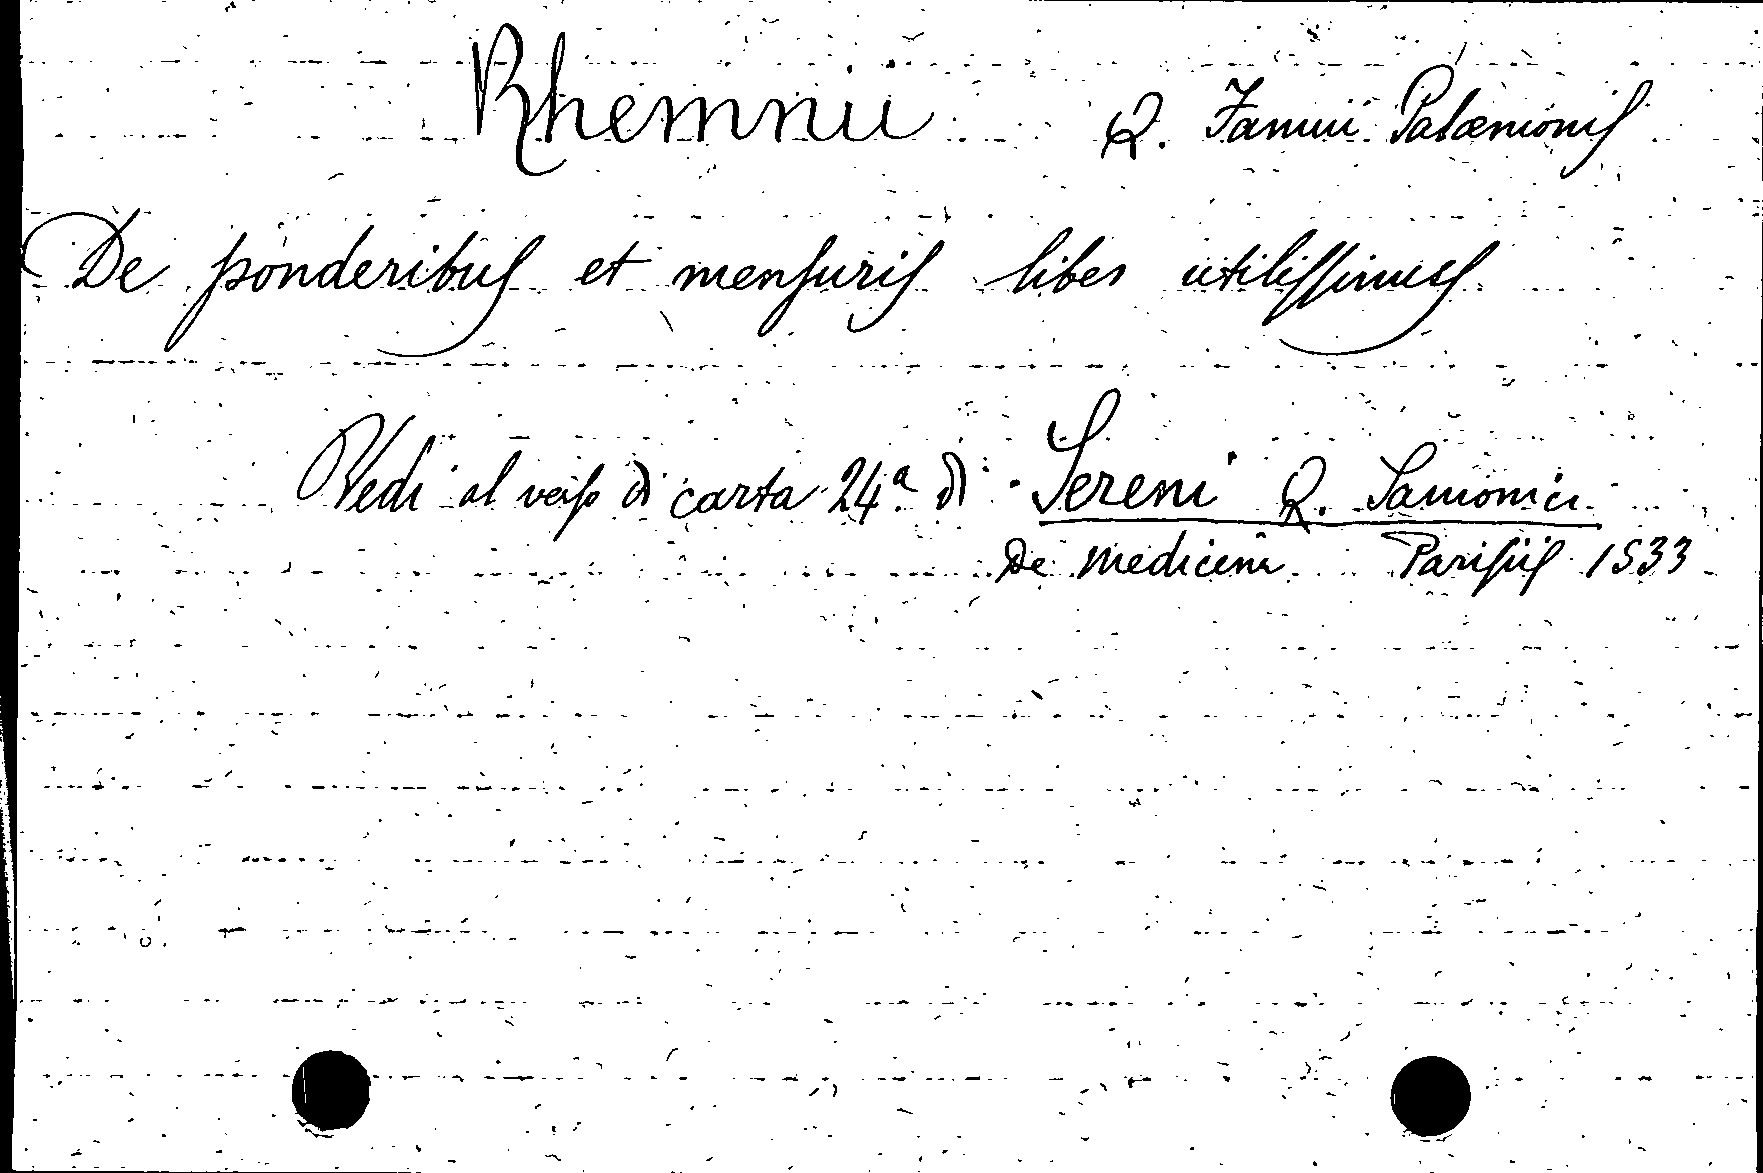 Rhemnii Q. Fannii Palæmonis
De ponderibus et mensuris liber utilissimus
Vedi al verso di carta 24ª di Sereni Q. Samonici
De medicina Parisiis 1533